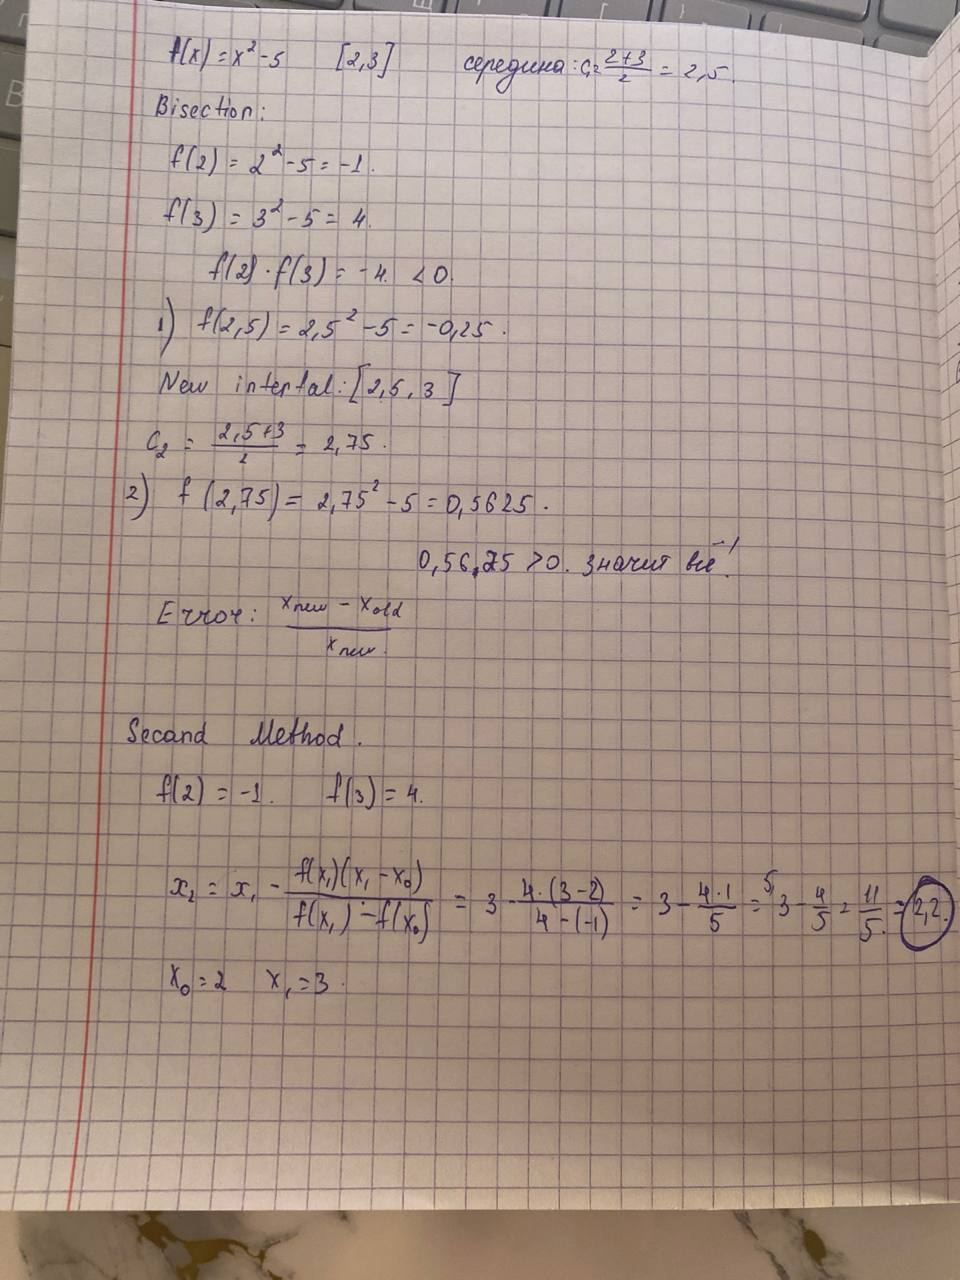 f(x) = x² - 5 [2,3] середина: c₁ = (2+3)/2 = 2,5.
Bisection:
f(2) = 2² - 5 = -1.
f(3) = 3² - 5 = 4.
f(2) · f(3) = -4. < 0.
1) f(2,5) = 2,5² - 5 = -0,25.
New interval: [2,5, 3]
C₂ = (2,5+3)/2 = 2,75.
2) f(2,75) = 2,75² - 5 = 0,5625.
0,56,25 > 0. значит всё!
Error: (x_new - x_old)/x_new
Secand Method.
f(2) = -1. f(3) = 4.
x₂ = x₁ - f(x₁)(x₁ - x₀)/(f(x₁) - f(x₀)) = 3 - 4·(3-2)/(4-(-1)) = 3 - 4·1/5 = 5) 3 - 4/5 = 11/5. = 2,2.
x₀ = 2 x₁ = 3.